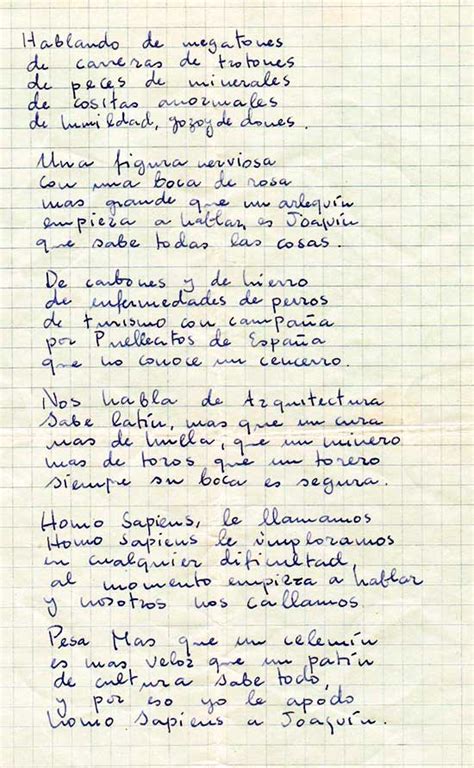 Hablando de megatones
de carreras de trotones
de peces de minerales
de cositas anormales
de humildad, gozo y de dones.
Una figura nerviosa
con una boca de rosa
mas grande que un arlequín
empieza a hablar, es Joaquín
que sabe todas las cosas.
De carbones y de hierro
de enfermedades de perros
de turismo con campaña
por Puellectos de España
que no conoce un cencerro.
Nos habla de Arquitectura
sabe latín, mas que un cura
mas de hulla, que un minero
mas de toros que un torero
siempre su boca es segura.
Homo Sapiens, le llamamos
Homo sapiens le imploramos
en cualquier dificultad,
al momento empieza a hablar
y nosotros nos callamos.
Pesa Mas que un celemín
es mas veloz que un patín
de cultura sabe todo,
y por eso yo le apodo
homo sapiens a Joaquín.